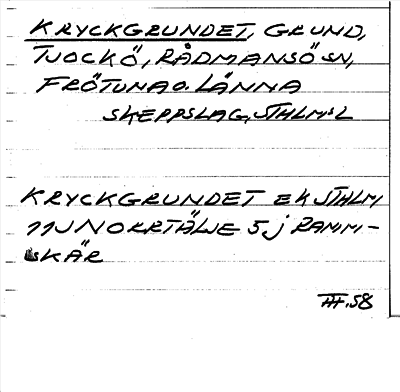 KRYCKGRUNDET, GRUND,
TJOCKÖ, RÅDMANSÖ SN,
FRÖTUNA O. LÄNNA
SKEPPSLAG, STHLMS L
KRYCKGRUNDET EK STHLM
11J NORRTÄLJE 5j RAMM-
SKÄR
HF.58